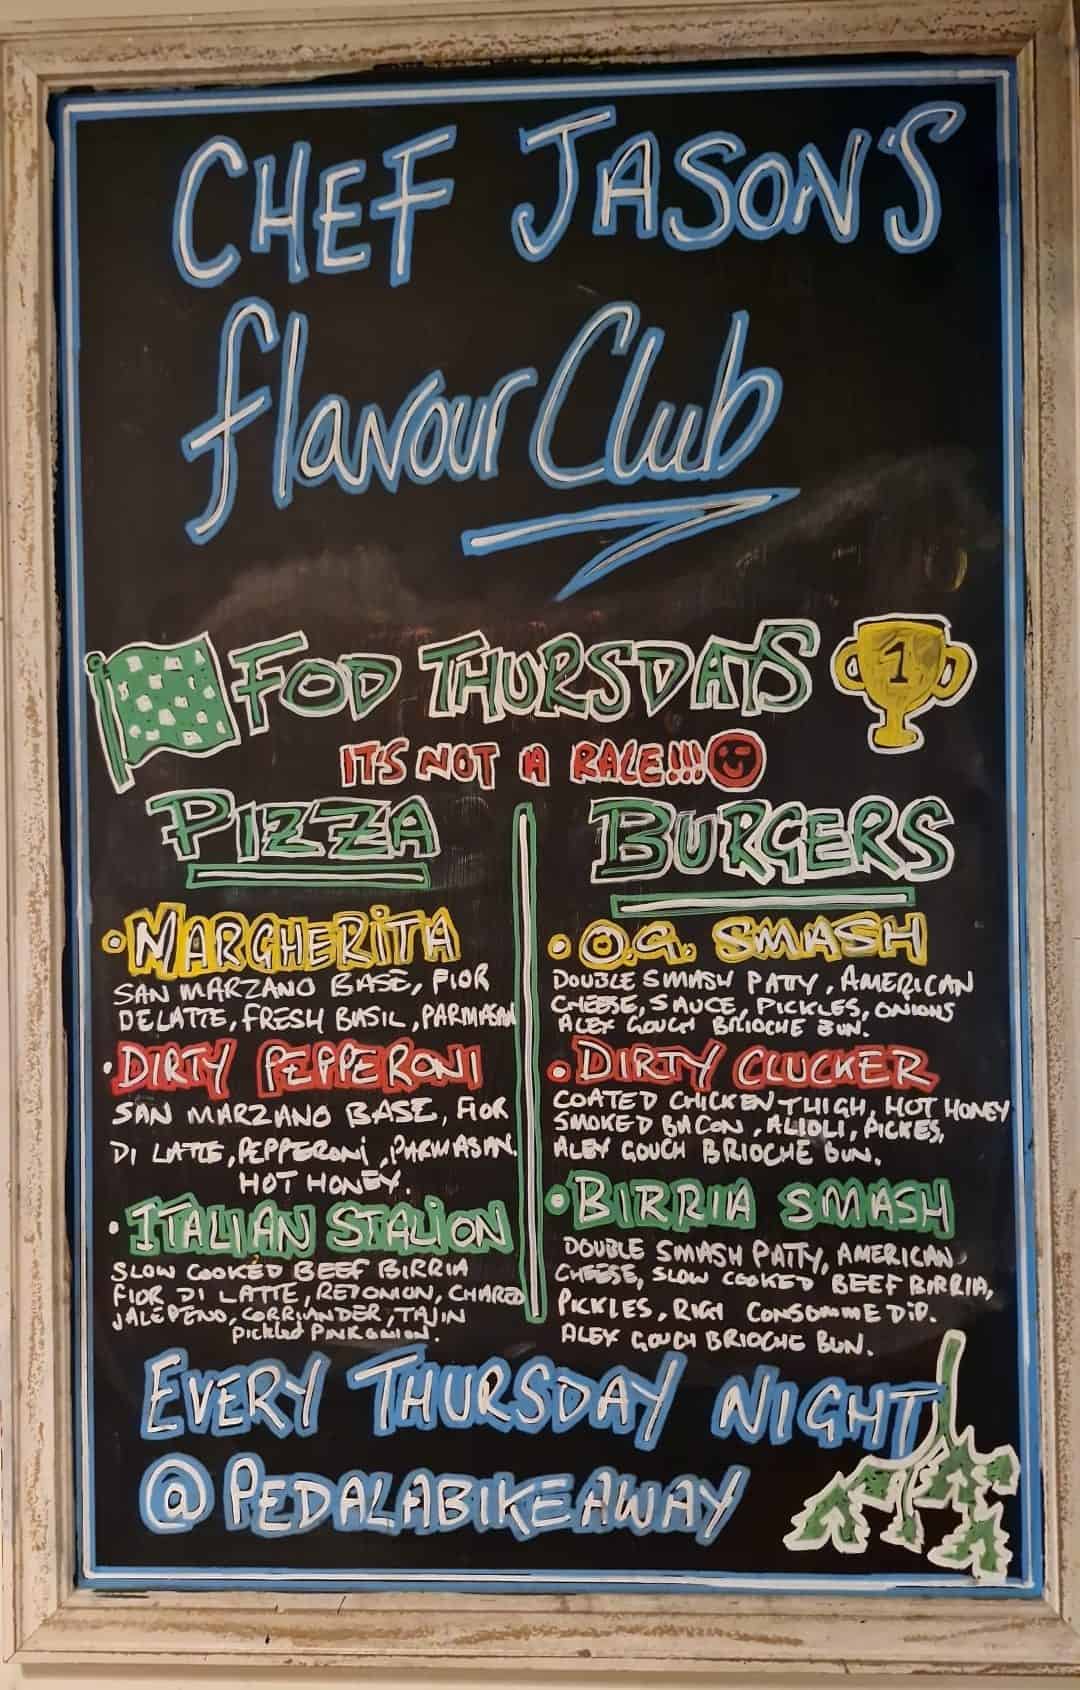 CHEF JASON'S
flavour Club
FOD THURSDAYS
1
IT'S NOT A RACE!!!
PIZZA
• MARGHERITA
SAN MARZANO BASE, FIOR
DELATTE, FRESH BASIL, PARMASAN
• DIRTY PEPPERONI
SAN MARZANO BASE, FIOR
DI LATTE, PEPPERONI, PARMASAN.
HOT HONEY.
• ITALIAN STALION
SLOW COOKED BEEF BIRRIA
FIOR DI LATTE, REDONION, CHARED
JALEPENO, CORRIANDER, TAJIN
Pickled PINK ONION.
BURGERS
• O.G. SMASH
DOUBLE SMASH PATTY, AMERICAN
CHEESE, SAUCE, PICKLES, ONIONS
ALEX GOUCH BRIOCHE BUN.
• DIRTY CLUCKER
COATED CHICKEN THIGH, HOT HONEY
SMOKED BACON, ALIOLI, PICKES,
ALEX GOUCH BRIOCHE BUN.
• BIRRIA SMASH
DOUBLE SMASH PATTY, AMERICAN
CHEESE, SLOW COOKED BEEF BIRRIA,
PICKLES, RICH CONSOMME DIP.
ALEX GOUCH BRIOCHE BUN.
EVERY THURSDAY NIGHT
@PEDALABIKEAWAY